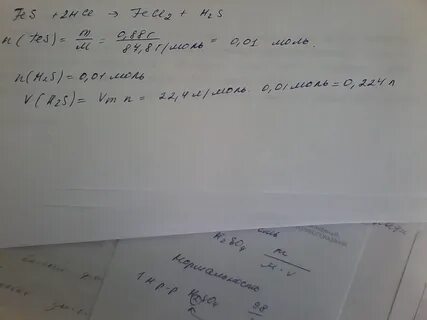 FeS + 2HCl → FeCl2 + H2S
n(FeS) = m/M = 0,88г/84,8г/моль = 0,01 моль.
n(H2S) = 0,01 моль
V(H2S) = Vm n = 22,4 л/моль · 0,01 моль = 0,224 л
H2SO4 m/M·V
Нормальность
1 н р-р H2SO4 98